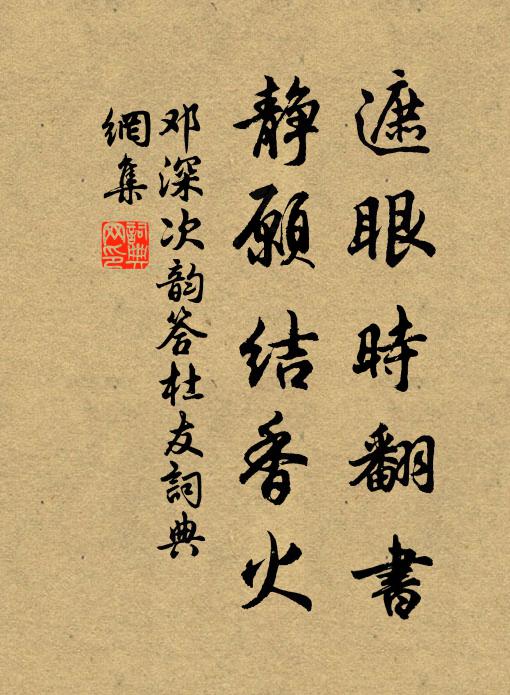 遮眼時翻書
静願結香火
邓深次韵答杜友詞典
網集
詞典
网印